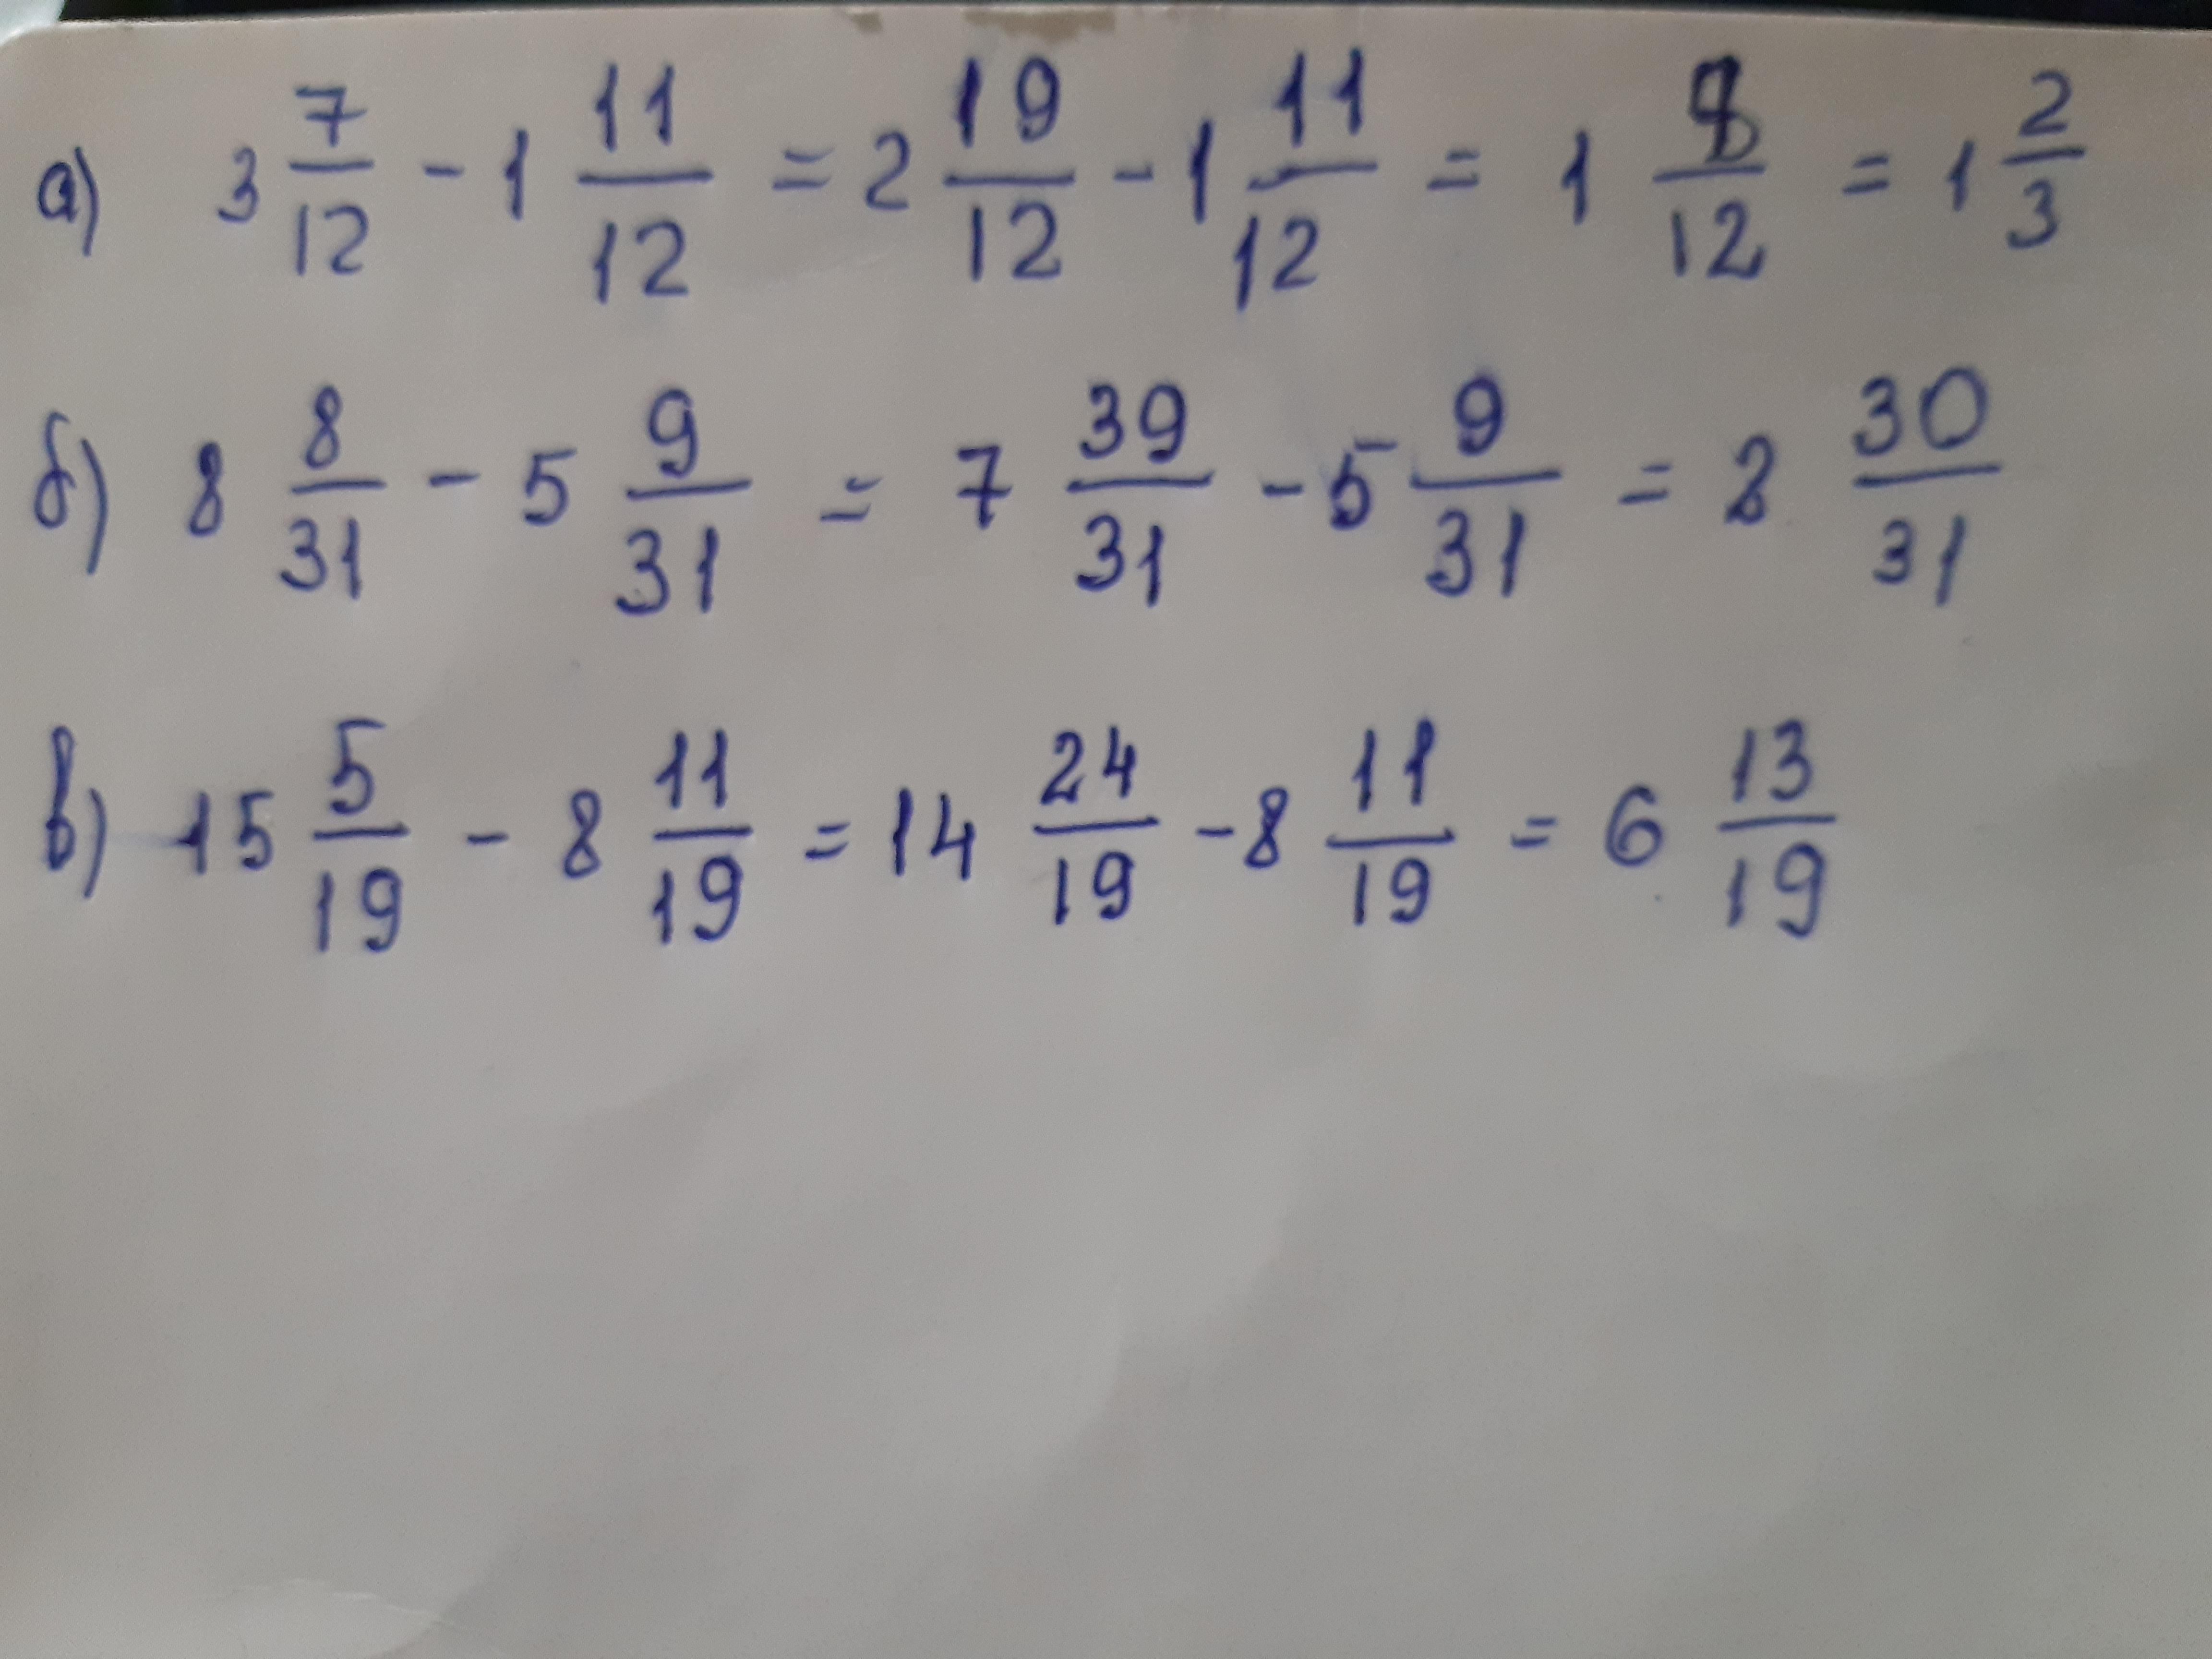 а) 3 7/12 - 1 11/12 = 2 19/12 - 1 11/12 = 1 8/12 = 1 2/3
б) 8 8/31 - 5 9/31 = 7 39/31 - 5 9/31 = 2 30/31
в) 15 5/19 - 8 11/19 = 14 24/19 - 8 11/19 = 6 13/19